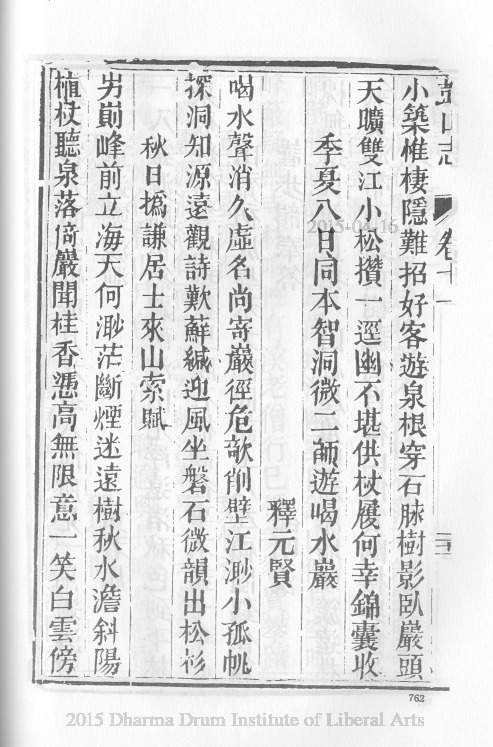 鼓山志 卷十一
小築惟棲隱難招好客遊泉根穿石脉樹影臥巖頭
天曠雙江小松攢一逕幽不堪供杖屨何幸錦囊收
季夏八日同本智洞微二師遊喝水巖
釋元賢
喝水聲消久虛名尚寄巖徑危欹削壁江渺小孤帆
探洞知源遠觀詩歎蘚緘迎風坐磐石微韻出松杉
秋日撝謙居士來山索賦
屴崱峰前立海天何渺茫斷煙迷遠樹秋水澹斜陽
植杖聽泉落倚巖聞桂香憑高無限意一笑白雲傍
2015-04-16
762
2015 Dharma Drum Institute of Liberal Arts